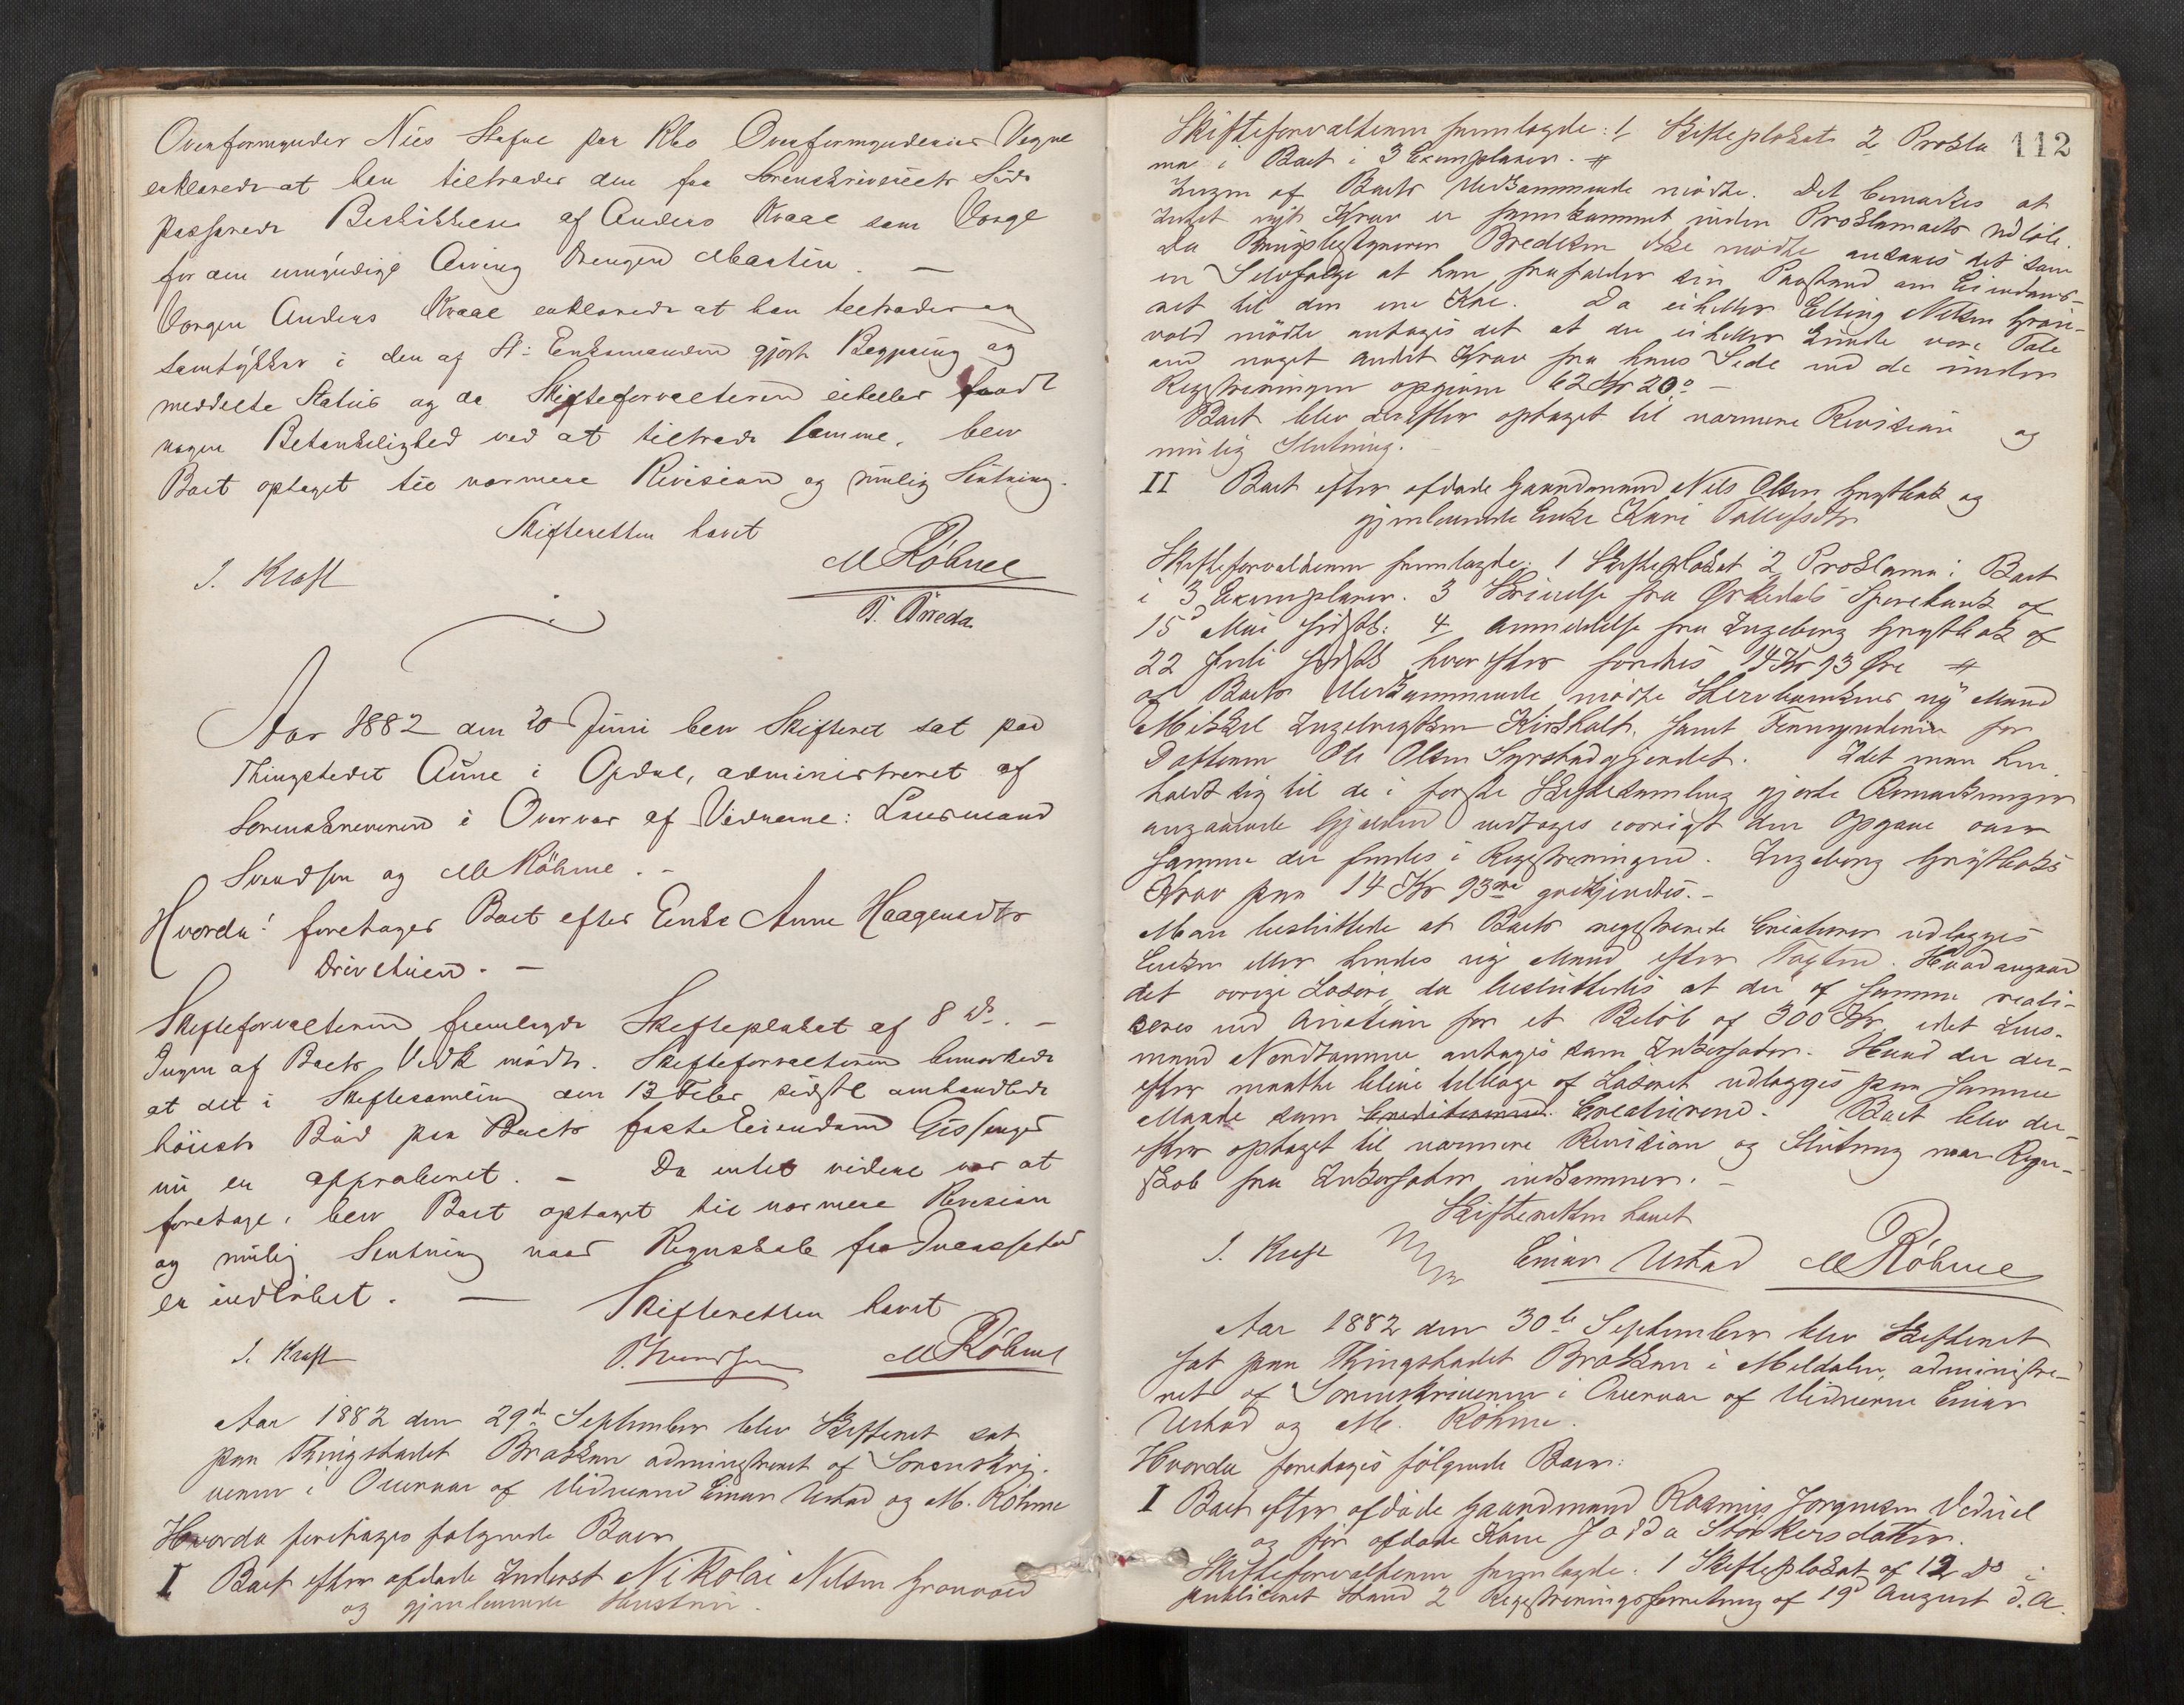 Overformynder Nils Stafne paa Rbo Overformynderiets Vegne
erklærede at han tiltræder den fra Sorenskriveriets Side
passerede Beskikkelse af Anders Kraal som Værge
for den umyndige Arving Drengen Martin. —
Værgen Anders Kraal erklærede at han tiltræder og
samtykker i den af St: Enkemanden gjort Begjæring og
meddelte Status og da Skifteforvalteren eiheller fandt
nogen Betænkelighed ved at tiltræde samme, blev
Boet optaget til nærmere Revision og mulig Slutning.
Skifteretten hævet
I. Kraft
M Röhme
Aar 1882 den 20 Juni blev Skifteret sat paa
Thingstedet Aune i Opdal, administreret af
Sorenskriveren i Overvær af Vidnerne: Lensmand
Svendsen og M Röhme. -
Hvorda: foretages Boet efter Enke Anne Haagensdtr
Drivstuen. —
Skifteforvalteren fremlagde Skifteplakat af 8 ds. —
Ingen af Boets Vedk mødte. Skifteforvalteren bemærkede
at det i Skiftesamling den 13 Febr sidstl omhandlede
höieste Bud paa Boets faste Eiendom Gissinger
nu er approberet. — Da intet videre var at
foretage, blev Boet optaget til nærmere Revision
og mulig Slutning naar Regnskab fra Incassator
er indløbet. —
Skifteretten hævet
I. Kraft
Svendsen
M Röhme
Aar 1882 den 29d September blev Skifteret sat
paa Thingstedet Brækken administreret af Sorenskri-
veren i Overvær af Vidnerne Einar Ustad og M. Röhme
Hvorda foretages følgende Boer
I Boet efter afdøde Inderst Nikolai Nilsen Grönvold
og gjenlevende Hustru.
112
Skifteforvalteren fremlagde: 1 Skifteplakat 2 Prokla
ma i Boet i 3 Exemplarer. #
Ingen af Boets Vedkommende mødte. Det bemærkes at
Intet nyt Krav er fremkommet inden Proklamaets Udløb.
Da Brugsbestyreren Bredesen ikke mødte ansaaes det som
en Selvfølge at han frafalder sin Paastand om Eiendoms-
ret til den ene Ko. Da eiheller Elling Nilsen Grön-
vold mødte antages det at der eiheller kunde være Tale
om noget andet Krav fra hans Side end de under
Registreringen opgivne 62 Kr 20 ø —
Boet blev derefter optaget til nærmere Revision og
mulig Slutning.
II Boet efter afdøde Gaardmand Nils Olsen Grytbak og
gjenlevende Enke Kari Tollefsdtr
Skifteforvalteren fremlagde: 1 Skifteplakat 2 Proklama i Boet
i 3 Exemplarer. 3 Skrivelse fra Ørkedals Sparebank af
15d Mai sidstl: 4 Anmeldelse fra Ingeborg Grytbak af
22 Juli sidstl hvorefter fordres 14 Kr 93 Øre #
af Boets Vedkommende mødte Skervbænkens ny Mand
Mikkel Ingebrigtsen Kirkholt, samt Formynderen for
Datteren Ole Olsen Syrstadgjerdet. Idet man hen
holdt sig til de i første Skiftesamling gjorte Bemærkninger
angaaende Gjælden indtages iøvrigt den Opgave over
samme der findes i Registreringen. Ingeborg Grytbaks
Krav paa 14 Kr 93 øre godkjendtes. —
Man besluttede at Boets registrerede Creaturer udlægges
Enken eller hendes ny Mand efter Taxten. Hvad angaar
det øvrige Løsøre, da besluttedes at der af samme reali-
seres ved Auction for et Beløb af 300 Kr, idet Lens-
mand Nordtømme antages som Inkassator. Hvad der der-
efter maatte blive tilbage af Løsøret udlægges paa samme
Maade som Creditorerne Creaturene. Boet blev der-
efter optaget til nærmere Revision og Slutning naar Regn-
skab fra Inkassator indkommer. —
Skifteretten hævet
I. Kraft
Einar Ustad
M Röhme
Aar 1882 den 30te September blev Skifteret
sat paa Thingstedet Brækken i Meldalen, administre-
ret af Sorenskriveren i Overvær af Vidnerne Einar
Ustad og M. Röhme.
Hvorda foretages følgende Boer:
I Boet efter afdøde Gaardmand Rasmus Jørgensen Deduel
og før afdøde Kone Jođa Størkersdatter.
Skifteforvalteren fremlagde: 1 Skifteplakat af 12 ds i
publiceret Stand 2 Registreringsforretning af 19d August d. A.